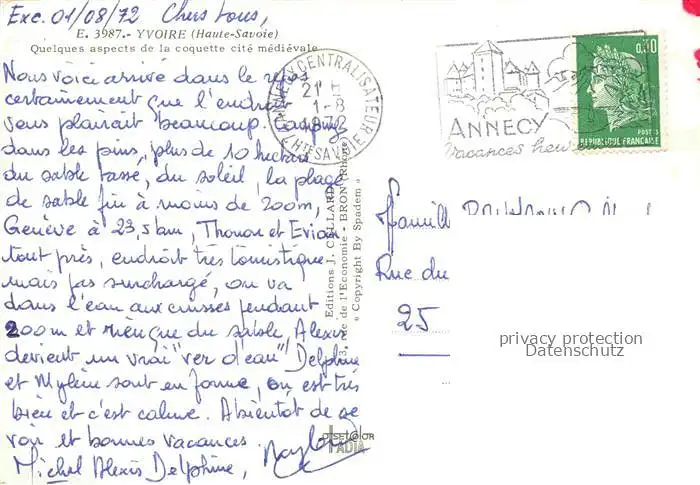 Exc. 01/08/72 Chers tous,
E. 3987.- YVOIRE (Haute-Savoie)
Quelques aspects de la coquette cité médiévale
Nous voici arrivé dans le repos
certainement que l'endroit
vous plairait beaucoup. Camping
dans les pins, plus de 10 hectares
du sable tassé, du soleil, la plage
de sable fin à moins de 200m,
Genève à 23,5 km, Thonon et Evian
tout près, endroit très touristique
mais pas surchargé, on va
dans l'eau aux cuisses pendant
200m et rien que du sable, Alexis
devient un vrai "ver d'eau" Delphine
et Mylène sont en forme, on est très
bien et c'est calme. A bientôt de se
voir et bonnes vacances.
Michel Alexis Delphine,
Editions J. CELLARD
3, rue de l'Economie - BRON (Rhône)
« Copyright By Spadem »
OFFSETCOLOR
IADIA
CENTRALISATEUR
21 H
1-8
1972
HTE SAVOIE
ANNECY
Vacances
0,30
POSTES
REPUBLIQUE FRANCAISE
Famille
Rue du
25
privacy protection
Datenschutz